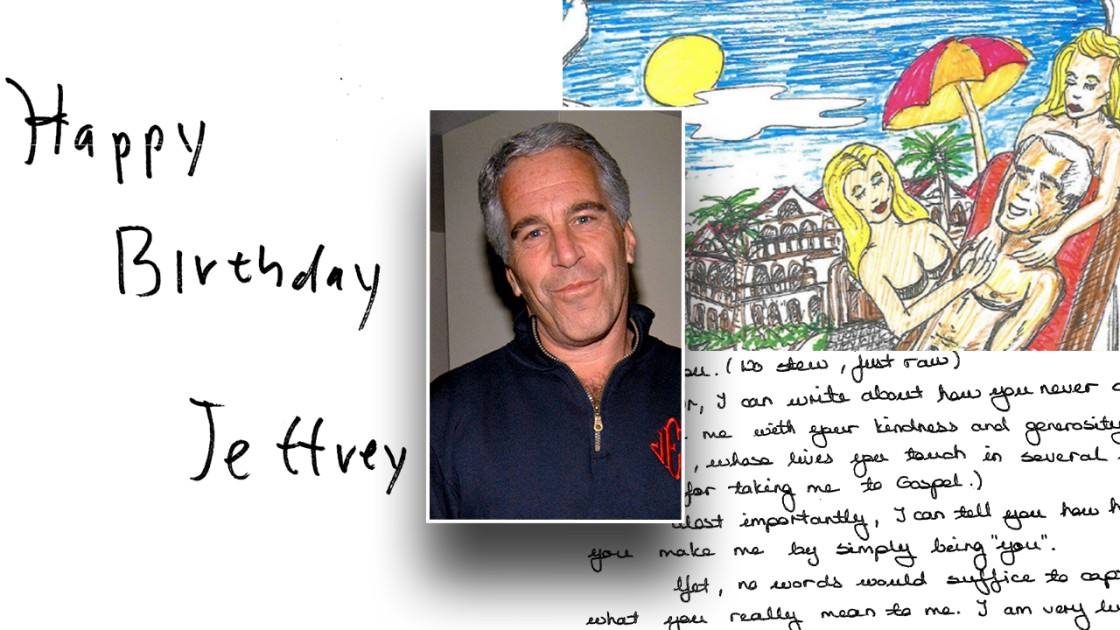 Happy
Birthday
Jeffrey
JE
you. (No stew, just raw)
or, I can write about how you never
me with your kindness and generosity
, whose lives you touch in several
for taking me to Gospel.)
Most importantly, I can tell you how
you make me by simply being "you".
Yet, no words would suffice to
what you really mean to me. I am very